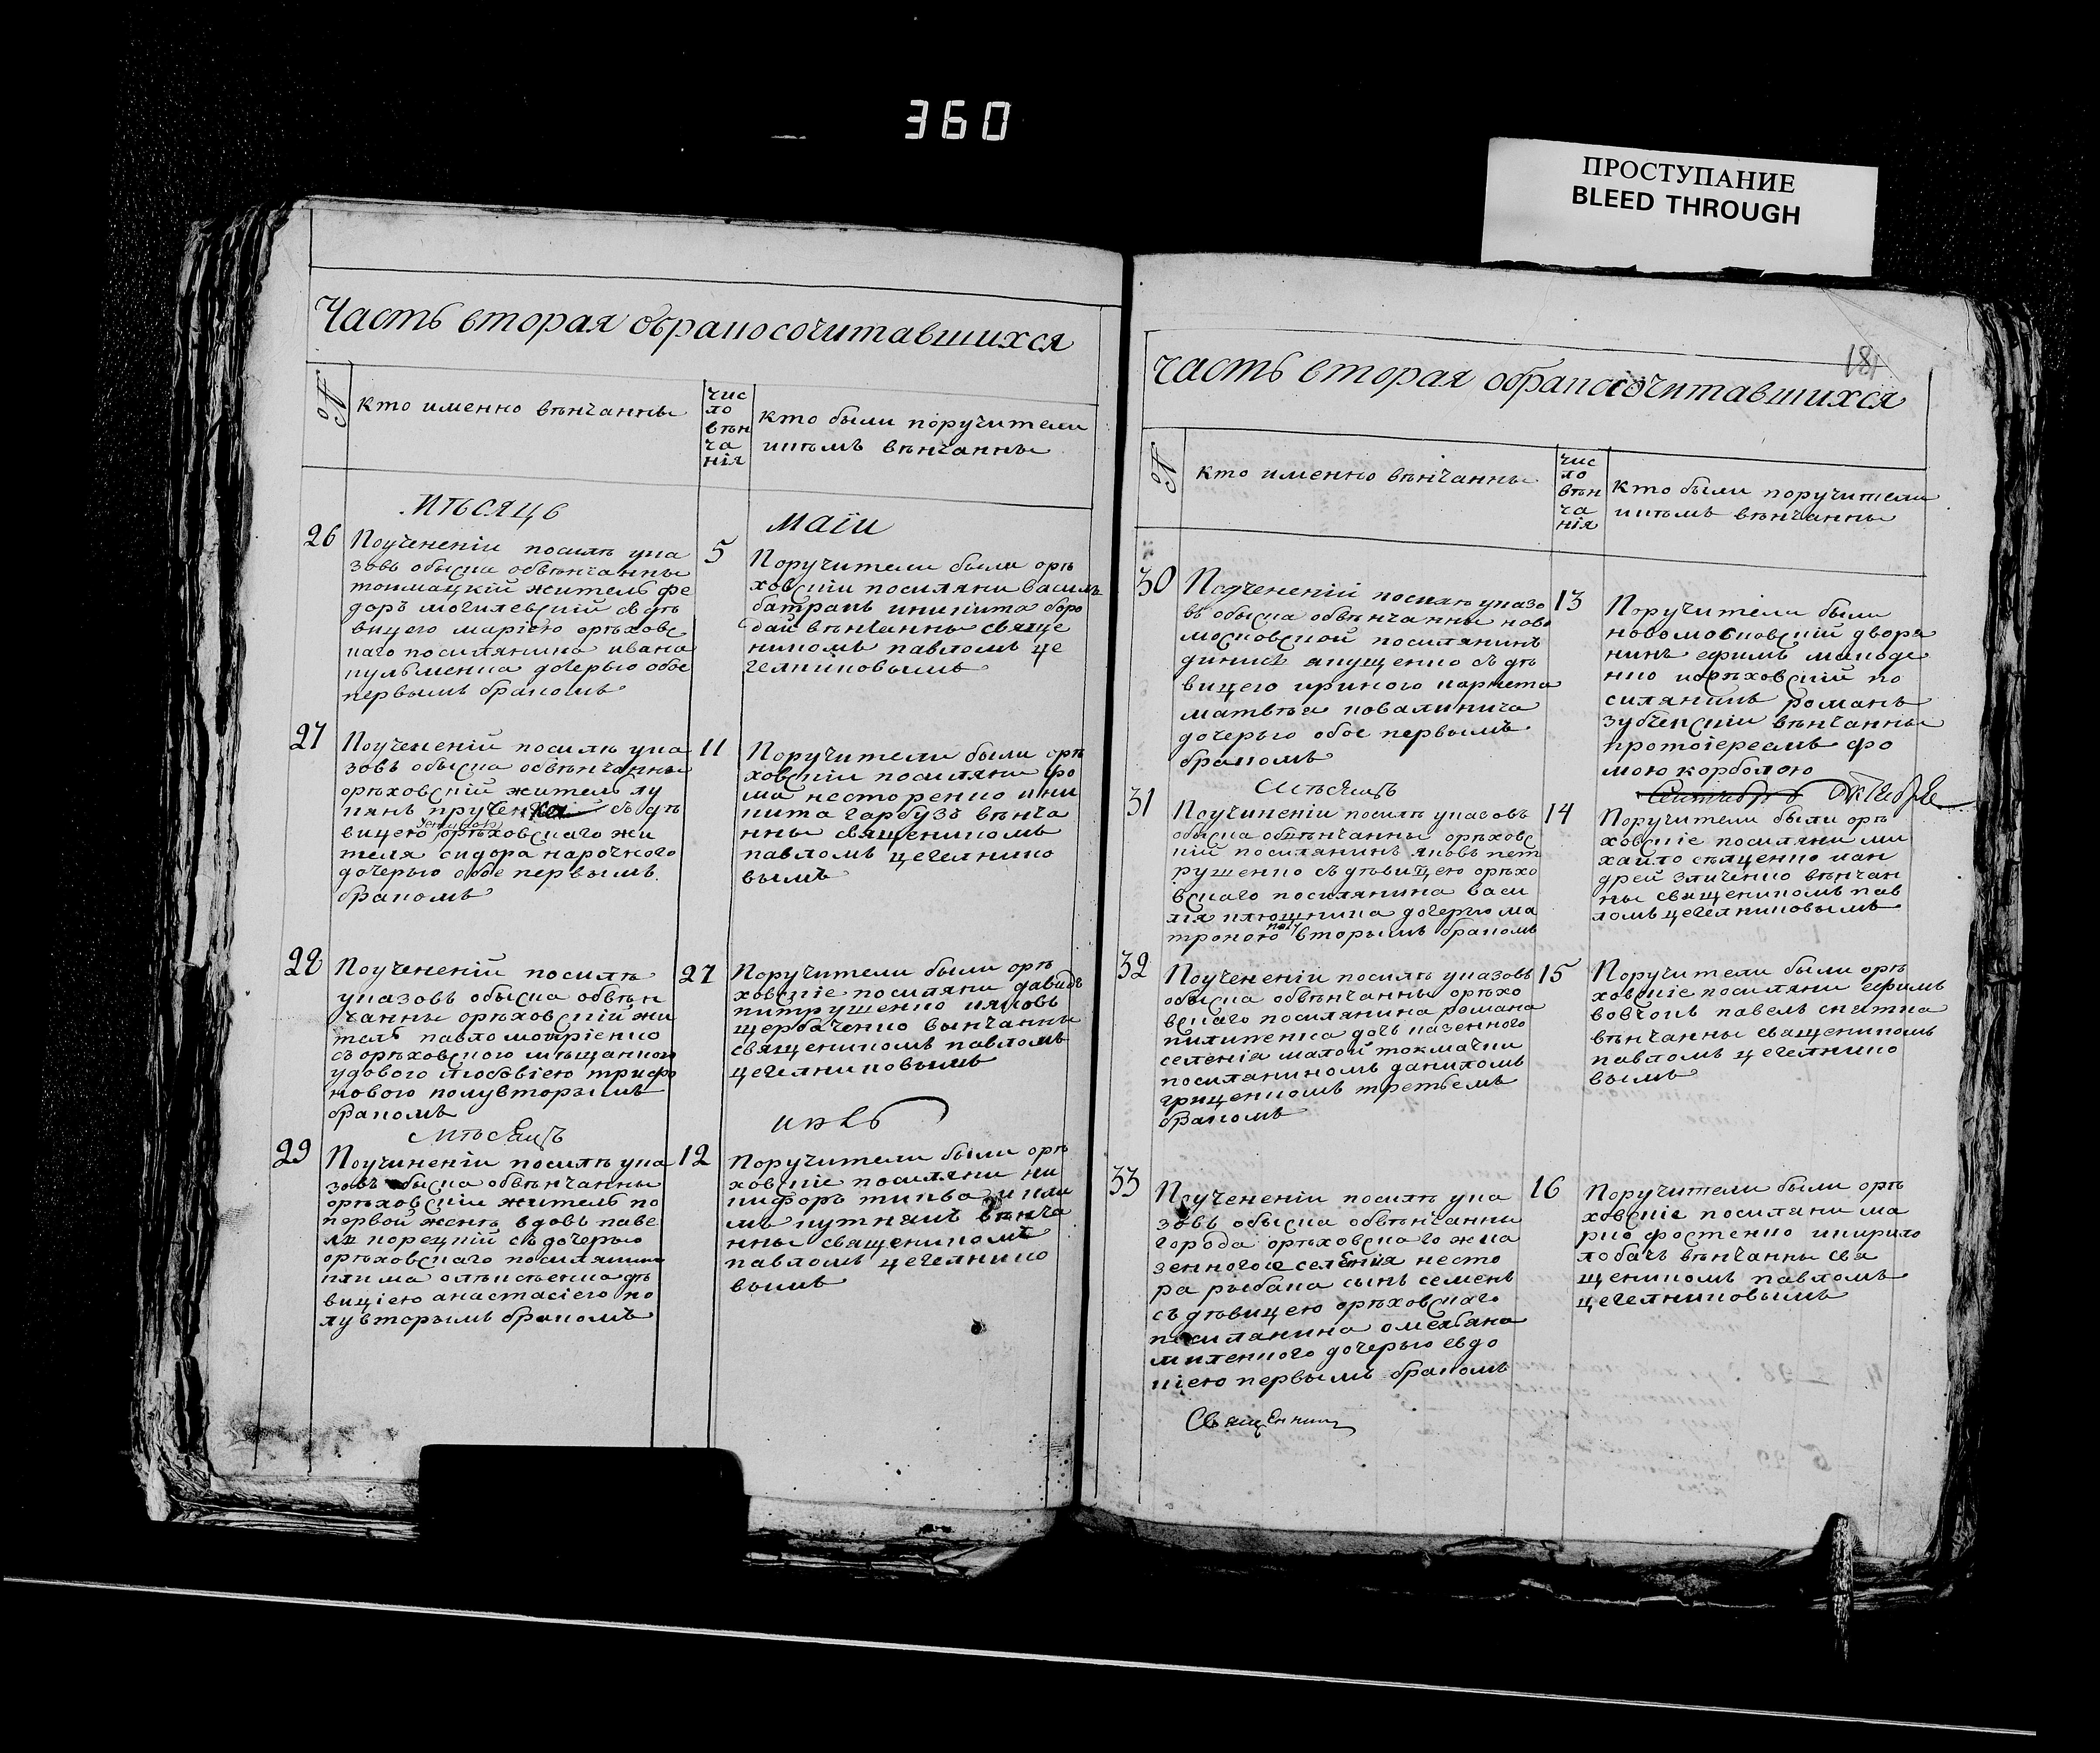 360
ПРОСТУПАНИЕ
BLEED THROUGH
Часть вторая обракосочитавшихся
№
кто именно вѣнчанны
чис
ло
вѣн
ча
нія
кто были поручители
икѣмъ вѣнчанны
мѣсяцъ
маіи
26
Поученении посилѣ ука
зовъ обыска обвѣнчанны
токмацкій житель фе
доръ могилевскій сь дѣ
вицею маріею орѣховс
каго поселянина ивана
кулбменка дочерью обое
первымъ бракомъ
5
Поручители были орѣ
ховскіи поселяни василь
батракъ иникита боро
дай вѣнчанны свяще
никомъ павломъ це
гелниковымъ
27
Поученений посилѣ ука
зовъ обыска обвѣнчанны
орѣховскій житель лу
кянъ сь дѣ
вицею орѣховскаго жи
теля сидора нарочного
дочерью обое первымъ
бракомъ
11
Поручители были орѣ
ховскіи поселяни фо
ма несторенко ини
кита гарбузъ вѣнча
нны священикомъ
павломъ цегелнико
вымъ
28
Поученений посилѣ
указовъ обыска обвѣн
чанны орѣховскій жи
тель павло мотріенко
съ орѣховского мѣщанкого
удового любовіею трифо
нового полувторымъ
бракомъ
27
Поручители были орѣ
ховскіе поселяни давидъ
питрушенко ияковъ
щербаченко вынчанны
священикомъ павломъ
цегелниковымъ
мѣсяцъ
июль
29
Поучинении посилѣ ука
зовъ обыска обвѣнчанны
орѣховскіи житель по
первой женѣ вдовъ паве
лъ корецкій сь дочерью
орѣховскаго поселянина
клима дѣ
вицею анастасіею по
лувторымъ бракомъ
12
Поручители были орѣ
ховскіе поселяни ни
кифоръ и кли
мъ вѣнча
нны священикомъ
павломъ цегелнико
вымъ
181
часть вторая обракосочитавшихся
№
кто именно вѣнчанны
чис
ло
вѣн
ча
нія
кто были поручители
икѣмъ вѣнчанны
30
Поученений посилѣ указо
въ обыска обвѣнчанны ново
московской поселянинъ
динисъ якущенко сь дѣ
вицею ириного
матвѣя ковалинича
дочерью обое первымъ
бракомъ
13
Поручители были
новомосковскій дворя
нинъ ефимъ
нко иорѣховскій по
силянинъ романъ
зубченскіи вѣнчанны
протоіереамъ фо
мою корболою
мѣсяцъ
сентябръ октября
31
Поучинении посилѣ указовъ
обыска обвѣнчанны орѣховс
кій посилянинъ яковъ пет
рушенко сь дѣвицею орѣхо
вскаго поселянина васи
лія плющника дочерью ма
троного полу вторымъ бракомъ
14
Поручители были орѣ
ховскіе поселяни ми
хайло сѣященко иан
дрей зличенко вѣнчан
ны священикомъ пав
ломъ цегелниковымъ
32
Поученении посилѣ указовъ
обыска обвѣнчанны орѣхо
вскаго поселянина романа
пилипенка дочь казенного
селенія малой токмачки
поселяниномъ даниломъ
грищенкомъ третьемъ
бракомъ
15
Поручители были орѣ
ховскіе поселяни ефимъ
вовчокъ павелъ снѣтка
вѣнчанны священикомъ
павломъ цегелнико
вымъ
33
Поученении посилѣ ука
зовъ обыска обвѣнчанны
города орѣховскаго жка
зенного селенія несто
ра рыбака сынъ семенъ
съ дѣвицею орѣховскаго
поселянина омеляна
миленкого дочерью евдо
кіею первымъ бракомъ
16
Поручители были орѣ
ховскіе поселяни ма
рко фостенко икирило
лобачъ вѣнчанны свя
щеникомъ павломъ
цегелниковымъ
Священникъ